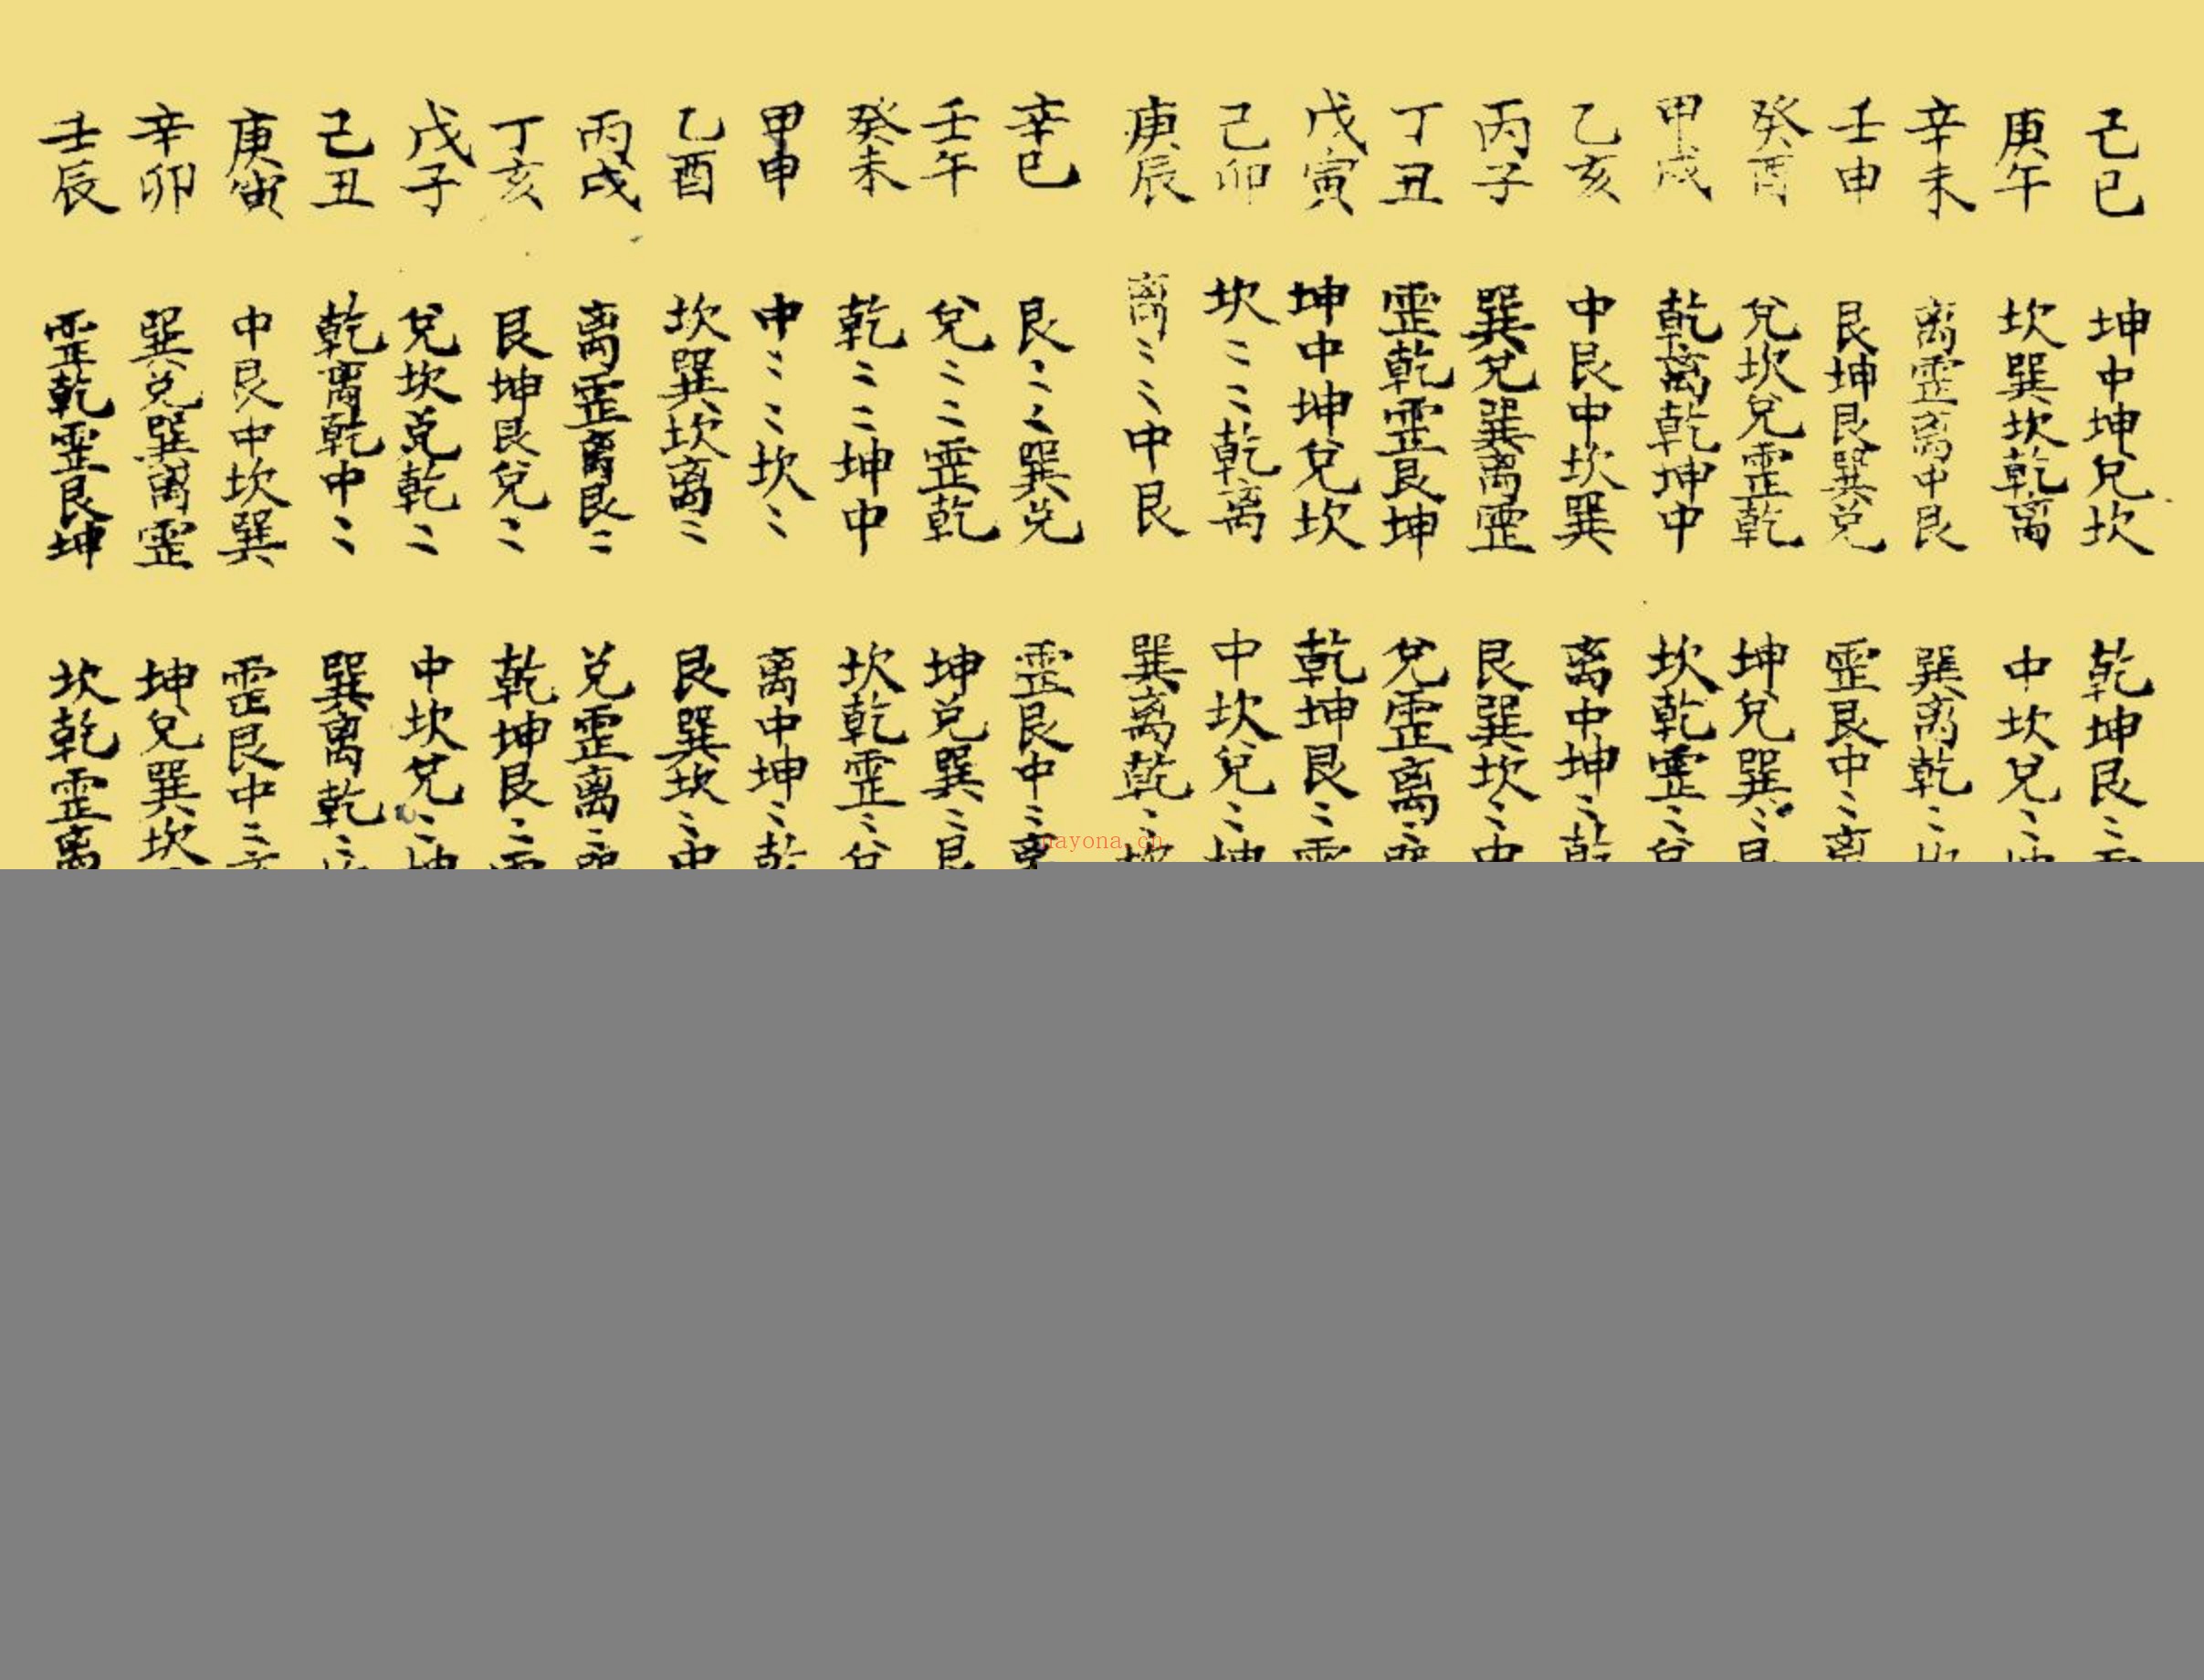 己巳 坤中坤兑坎 乾坤艮〻
庚午 坎巽坎乾离 中坎兑〻
辛未 离霊离中艮 巽离乾〻
壬申 艮坤艮巽兑 霊艮中〻离
癸酉 兑坎兑霊乾 坤兑巽〻艮
甲戌 乾离乾坤中 坎乾霊〻兑
乙亥 中艮中坎巽 离中坤〻乾
丙子 巽兑巽离霊 艮巽坎〻中
丁丑 霊乾霊艮坤 兑霊离〻巽
戊寅 坤中坤兑坎 乾坤艮〻霊
己卯 坎〻〻乾离 中坎兑〻坤
庚辰 离〻〻中艮 巽离乾〻坎
辛巳 艮〻〻巽兑 霊艮中〻离
壬午 兑〻〻霊乾 坤兑巽〻艮
癸未 乾〻〻坤中 坎乾霊〻兑
甲申 中〻〻坎〻 离中坤〻乾
乙酉 坎巽坎离〻 艮巽坎〻中
丙戌 离霊离艮〻 兑霊离〻巽
丁亥 艮坤艮兑〻 乾坤艮〻霊
戊子 兑坎兑乾〻 中坎兑〻坤
己丑 乾离乾中〻 巽离乾〻
庚寅 中艮中坎巽 霊艮中〻
辛卯 巽兑巽离霊 坤兑巽坎
壬辰 霊乾霊艮坤 坎乾霊离
nayona.cn